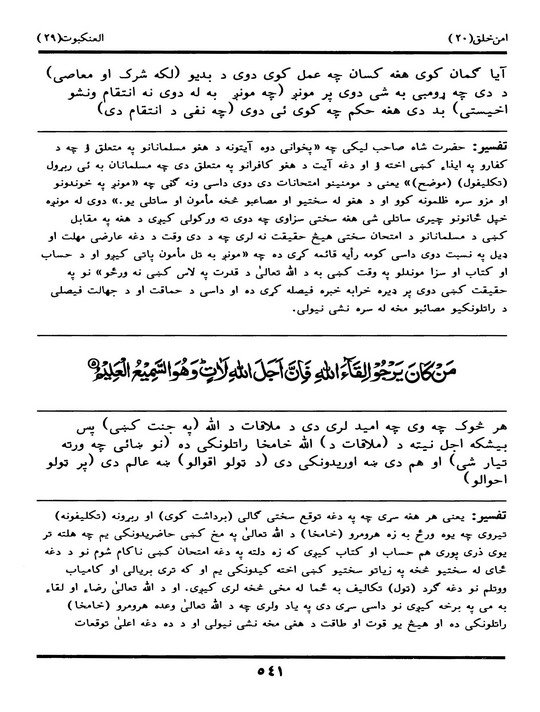 امن خلق (۲۰) العنكبوت (۲۹)
آیا گمان کوی هغه کسان چه عمل کوی دوی د بدیو (لکه شرک او معاصی)
د دی چه ړومبی به شی دوی پر مونږ (چه مونږ به له دوی نه انتقام ونشو
اخیستی) بد دی هغه حکم چه کوی ئی دوی (چه نفی د انتقام دی)
تفسیر: حضرت شاه صاحب لیکی چه «پخوانی دوه آیتونه د هغو مسلمانانو په متعلق ؤ چه د
کفارو په ایذاء کښی اخته ؤ او دغه آیت د هغو کافرانو په متعلق دی چه مسلمانان به ئی ربړول
(تکلیفول) (موضح)» یعنی د مومنینو امتحانات دی دوی داسی ونه گڼی چه «مونږ به خوندونو
او مزو سره ظلمونه کوو او د هغو له سختیو او مصائبو څخه مأمون او ساتلی یو.» دوی له مونږه
خپل ځانونو چیری ساتلی شی هغه سختی سزاوی چه دوی ته ورکولی کیږی د هغه په مقابل
کښی د مسلمانانو د امتحان سختی هیڅ حقیقت نه لری چه د دی وقت د دغه عارضی مهلت او
ډیل په نسبت دوی داسی کومه رأیه قائمه کړی ده چه «مونږ به تل مأمون پاتی کیږو او د حساب
او کتاب او سزا موندلو په وقت کښی به د الله تعالیٰ د قدرت په لاس کښی نه ورځو» نو په
حقیقت کښی دوی پر ډیره خرابه خبره فیصله کړی ده او داسی د حماقت او د جهالت فیصلی
د راتلونکیو مصائبو مخه له سره نشی نیولی.
مَنْ كَانَ يَرْجُوْا لِقَآءَ اللهِ فَاِنَّ اَجَلَ اللهِ لَاٰتٍ ؕ وَهُوَ السَّمِيْعُ الْعَلِيْمُ ۵
هر څوک چه وی چه امید لری دی د ملاقات د الله (په جنت کښی) پس
بیشکه اجل نیته د (ملاقات د) الله خامخا راتلونکی ده (نو ښائی چه ورته
تیار شی) او هم دی ښه اوریدونکی دی (د ټولو اقوالو) ښه عالم دی (پر ټولو
احوالو)
تفسیر: یعنی هر هغه سړی چه په دغه توقع سختی گالی (برداشت کوی) او ربړونه (تکلیفونه)
تیروی چه یوه ورځ به زه هرومرو (خامخا) د الله تعالیٰ په مخ کښی حاضریدونکی یم چه هلته تر
یوی ذری پوری هم حساب او کتاب کیږی که زه دلته په دغه امتحان کښی ناکام شوم نو د دغه
ځای له سختیو څخه په زیاتو سختیو کښی اخته کیدونکی یم او که تری بریالی او کامیاب
ووتلم نو دغه گرد (ټول) تکالیف به ځما له مخی څخه لری کیږی. او د الله تعالیٰ رضاء او لقاء
به می په برخه کیږی نو داسی سړی دی په یاد ولری چه د الله تعالیٰ وعده هرومرو (خامخا)
راتلونکی ده او هیڅ یو قوت او طاقت د هغی مخه نشی نیولی او د ده دغه اعلیٰ توقعات
۵٤۱